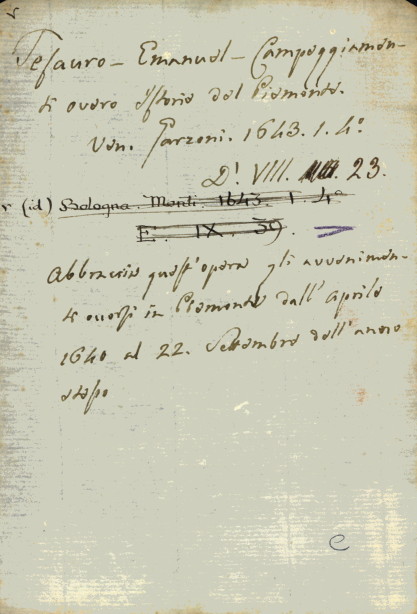 Tesauro – Emanuel – Campeggiamen-
ti overo Istorie del Piemonte.
Ven. Garzoni. 1643. 1. 4º
D! VIII. 23.
(id) Bologna. Monti. 1643. 1. 4º
E. IX. 39.
Abbraccia quest'opera gli avvenimen-
ti occorsi in Piemonte dall'Aprile
1640 al 22. Settembre dell'anno
stesso
e